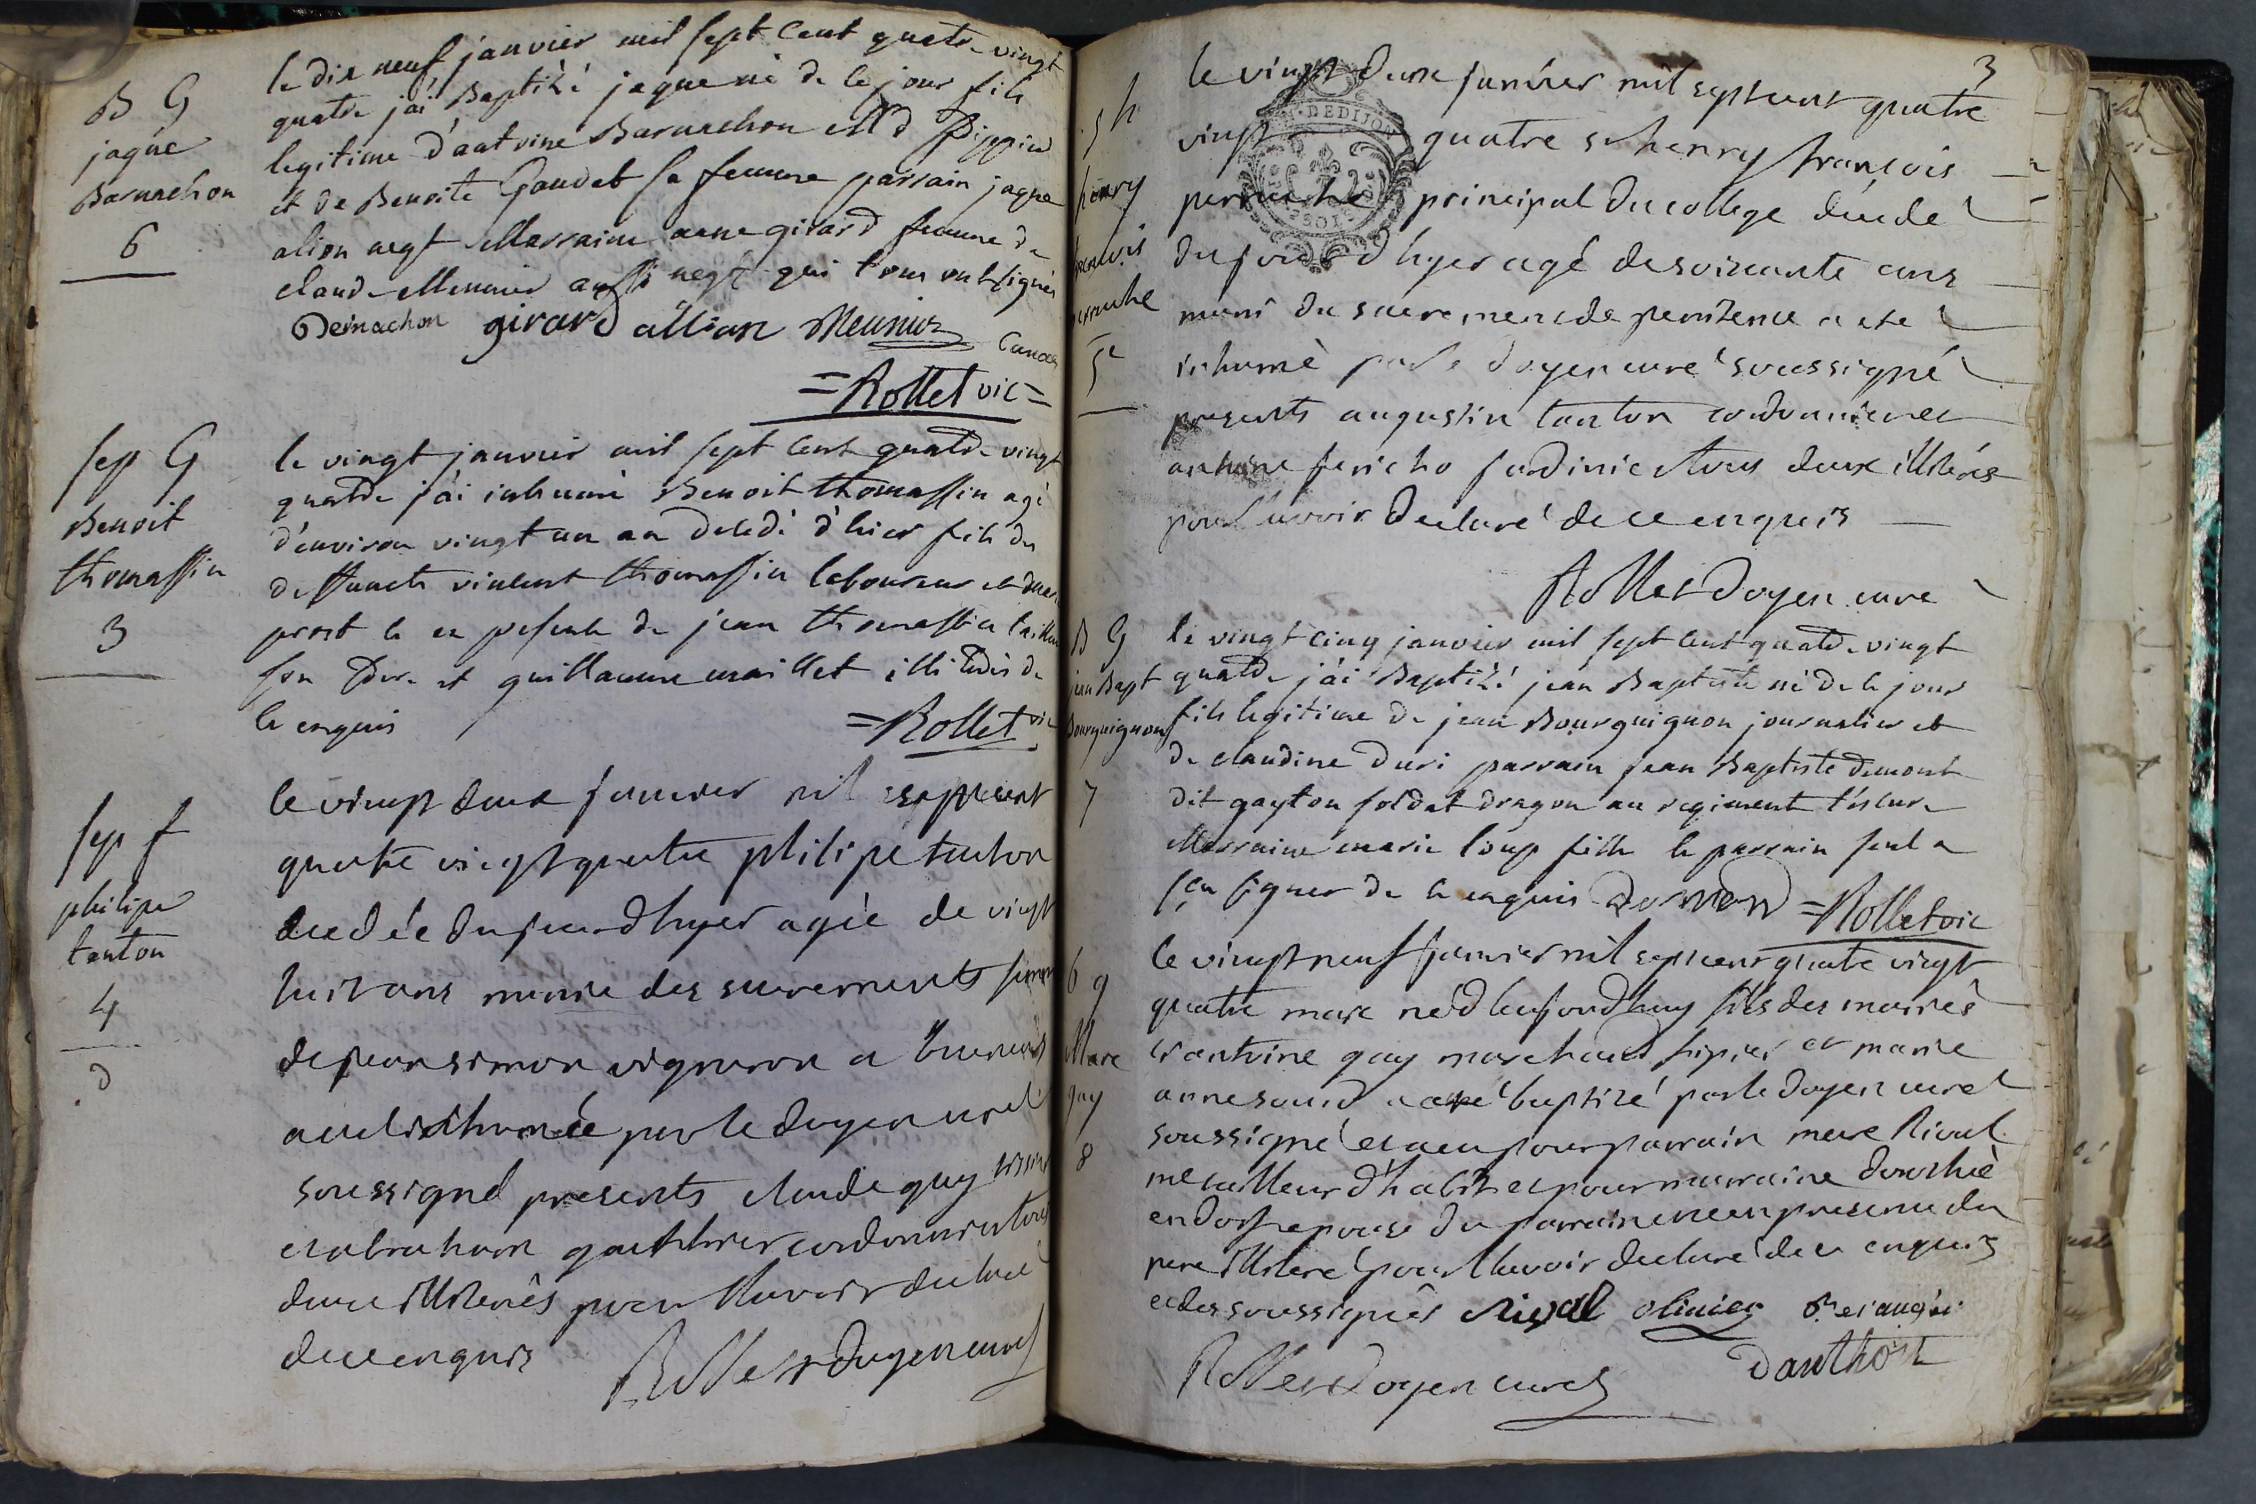 B G
jaque
Barnachon
6
le dix neuf janvier mil sept cent quatre vingt
quatre j'ai Baptizé jaque né de ce jour fils
legitime d'antoine Barnachon Md
et de Benoite Gaudet sa femme parrain jaque
alion negt Marraine anne girard femme de
claude Meunier aussi negt qui tous ont signés
Bernachon girard allian Meunier
=Rollet vic=
sep G
Benoit
thomassin
3
le vingt janvier mil sept cent quatre vingt
quatre j'ai inhumé Benoit thomassin agé
d'environ vingt un an decedé d'hier fils du
deffunct vincent thomassin laboureur et
prost le en presence de jean thomassin
son frere et guillaume maillet illiterés de
ce enquis =Rollet vic
sep f
philipe
tanton
4
le vingt deux janvier mil sept cent
quatre vingt quatre philipe tanton
decedée du jour d hyer agée de vingt
huit ans munie des sacrements femme
de jean simon vigneron a
a eté inhumée par le doyen curé
soussigné presents claude guy
et abraham gauthier cordonnier tous
deux illiterés pour l avoir declaré
de ce enquis Rollet doyen curé
3
s h
henry
francois
perruche
5e
le vingt deux janvier mil sept cent quatre
vingt quatre sr henry françois
perruche principal du college décédé
du jour d hyer agé de soixante ans
muni du sacrement de penitence a eté
inhumé par le doyen curé soussigné
presents augustin tanton cordonnier et
antoine jericho jardinier tous deux illiterés
pour l avoir declaré de ce enquis
DEDIJON
Rollet doyen curé
B G
jean Bapt
Bourguignon
7
le vingt cinq janvier mil sept cent quatre vingt
quatre j'ai Baptizé jean Baptiste né de ce jour
fils legitime de jean Bourguignon journalier et
de claudine duri parrain jean Baptiste dumont
dit gayton soldat dragon au regiment
Marraine marie loup fille le parrain seul a
sçu signer de ce enquis =Rollet vic
b g
Marc
guy
8
le vingt neuf janvier mil sept cent quatre vingt
quatre marc né d aujourdhuy fils des mariés
sr antoine guy marchand fripier et marie
anne a eté baptizé par le doyen curé
soussigné et a eu pour parrain marc Rival
me tailleur d'habits et pour marraine dorothée
epouse du parrain et en presence du
pere illiteré pour l avoir declaré de ce enquis
et des soussignés Rival olinier
danthost
Rollet doyen curé